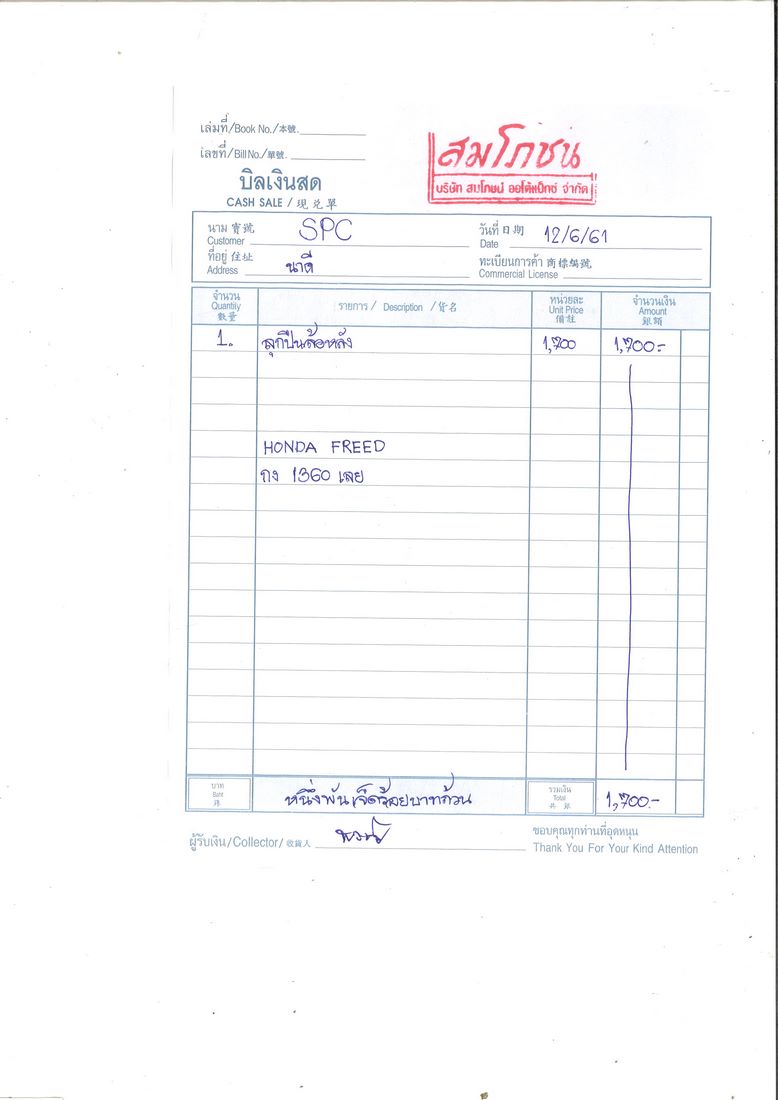 เล่มที่/Book No./本號.
เลขที่/Bill No./單號.
สมโภชน์
บริษัท สมโภชน์ ออโต้แม็กซ์ จำกัด
บิลเงินสด
CASH SALE / 現兑單
นาม 寶號 SPC วันที่ 日期 12/6/61
Customer Date
ที่อยู่ 住址 นาดี ทะเบียนการค้า 商標編號
Address Commercial License
จำนวน รายการ / Description / 貨名 หน่วยละ จำนวนเงิน
Quantity Unit Price Amount
數量 價註 銀額
1. ลูกปืนล้อหลัง 1,700 1,700.-
HONDA FREED
กง 1360 เลย
บาท หนึ่งพันเจ็ดร้อยบาทถ้วน รวมเงิน 1,700.-
Baht Total
銖 共銀
ผู้รับเงิน/Collector/收貨人 ขอบคุณทุกท่านที่อุดหนุน
Thank You For Your Kind Attention